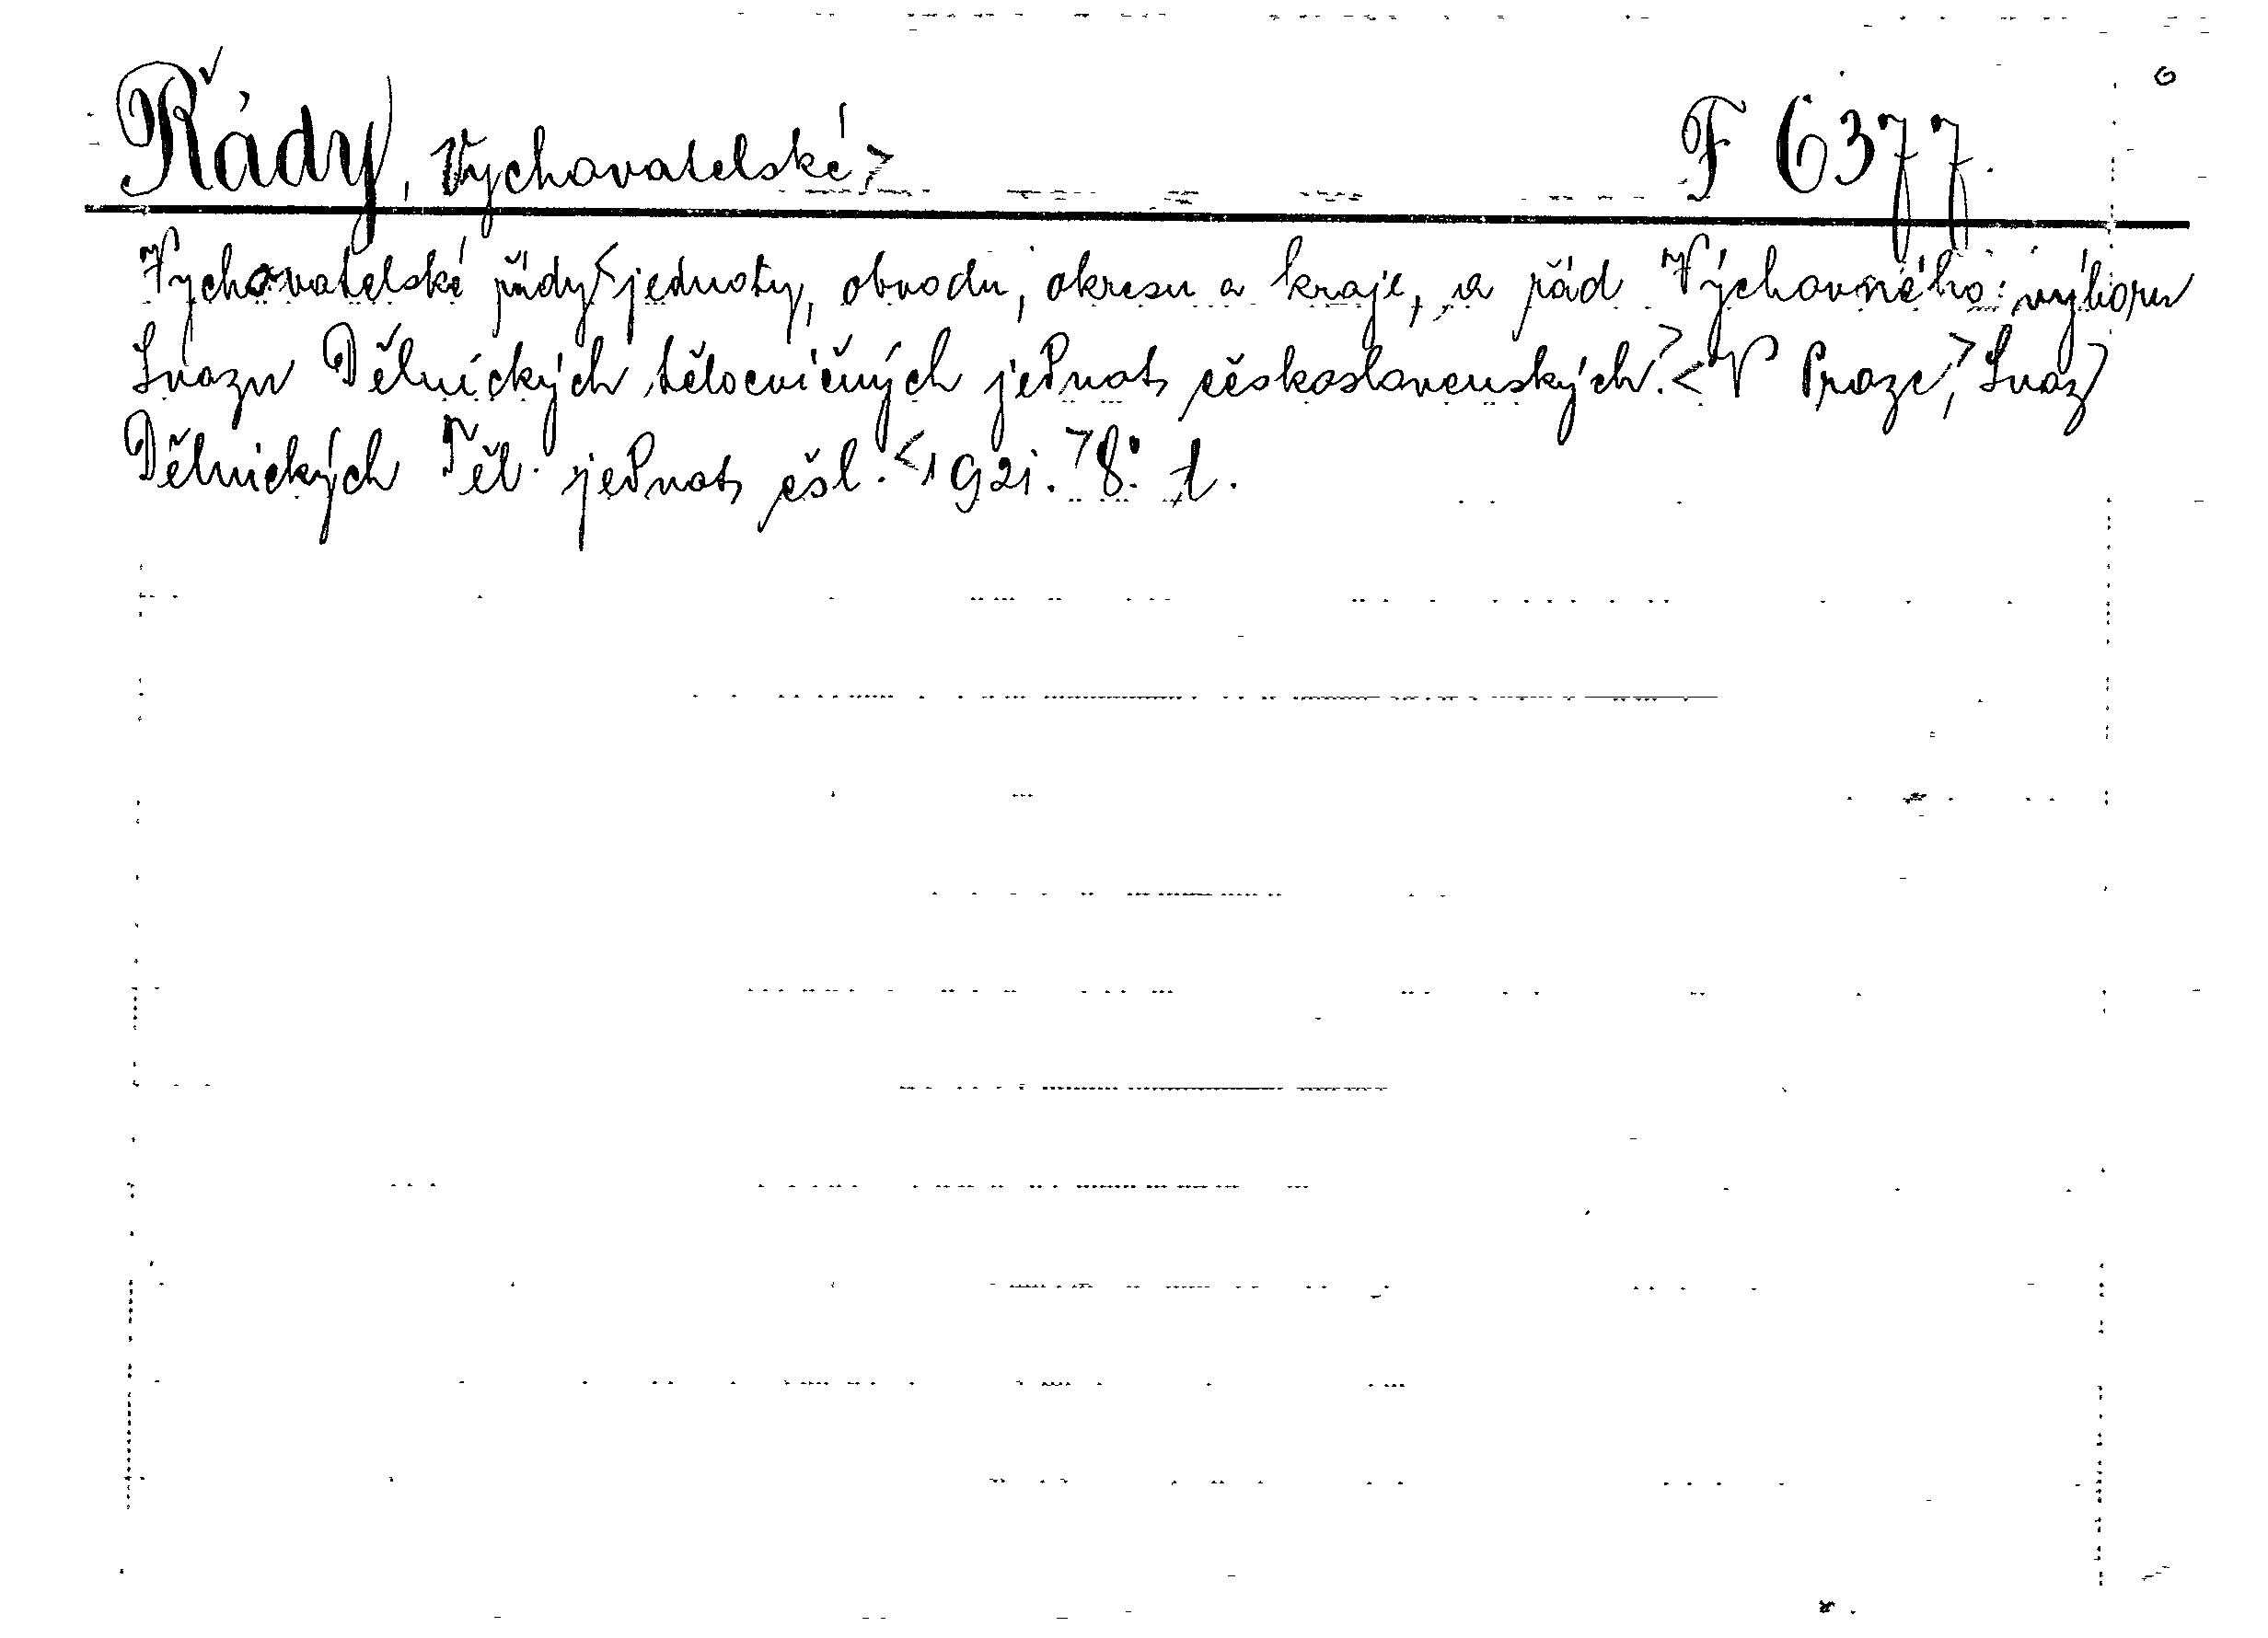 Řády, Vychovatelské> F 6377.
Vychovatelské řády< jednoty, obvodu, okresu a kraje, a řád Výchovného výboru
Svazu Dělnických tělocvičných jednot československých.> < V Praze,> Svaz
Dělnických Těl. jednot čsl. < 1921. > 8°. 1.